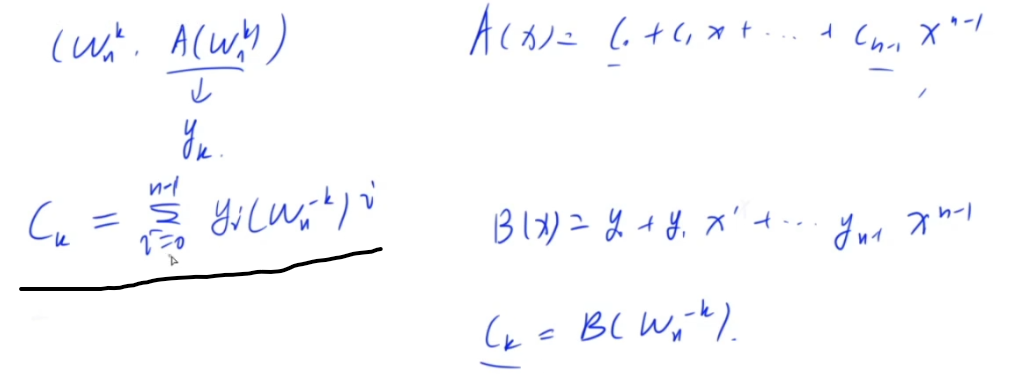 (W_n^k, A(W_n^k))
↓
y_k.
C_k = \sum_{i=0}^{n-1} y_i (W_n^{-k})^i
A(x) = C_0 + C_1 x + ... + C_{n-1} x^{n-1},
B(x) = y_0 + y_1 x^1 + ... y_{n-1} x^{n-1}
C_k = B(W_n^{-k}).